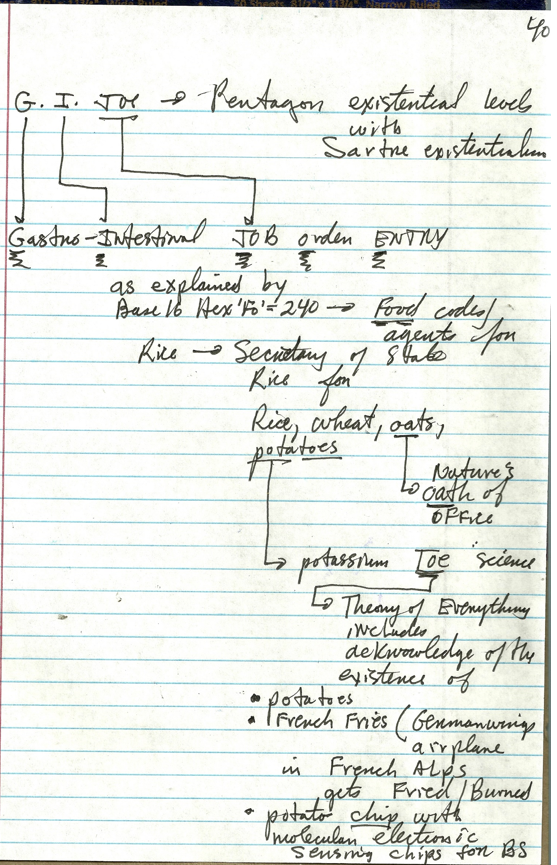 40
G. I. JOE → Pentagon existential levels
with
Sartre existentialism
Gastro-Intestinal JOB order ENTRY
as explained by
Base 16 Hex 'F0' = 240 → Food codes/
agents for
Rice → Secretary of State
Rice for
Rice, wheat, oats,
potatoes
Nature's
oath of
OFFice
potassium TOE science
Theory of Everything
includes
acknowledge of the
existence of
• potatoes
• French Fries (Germanwings
airplane
in French Alps
gets Fried/Burned
• potato chip with
molecular electronic
sensing chips for BS